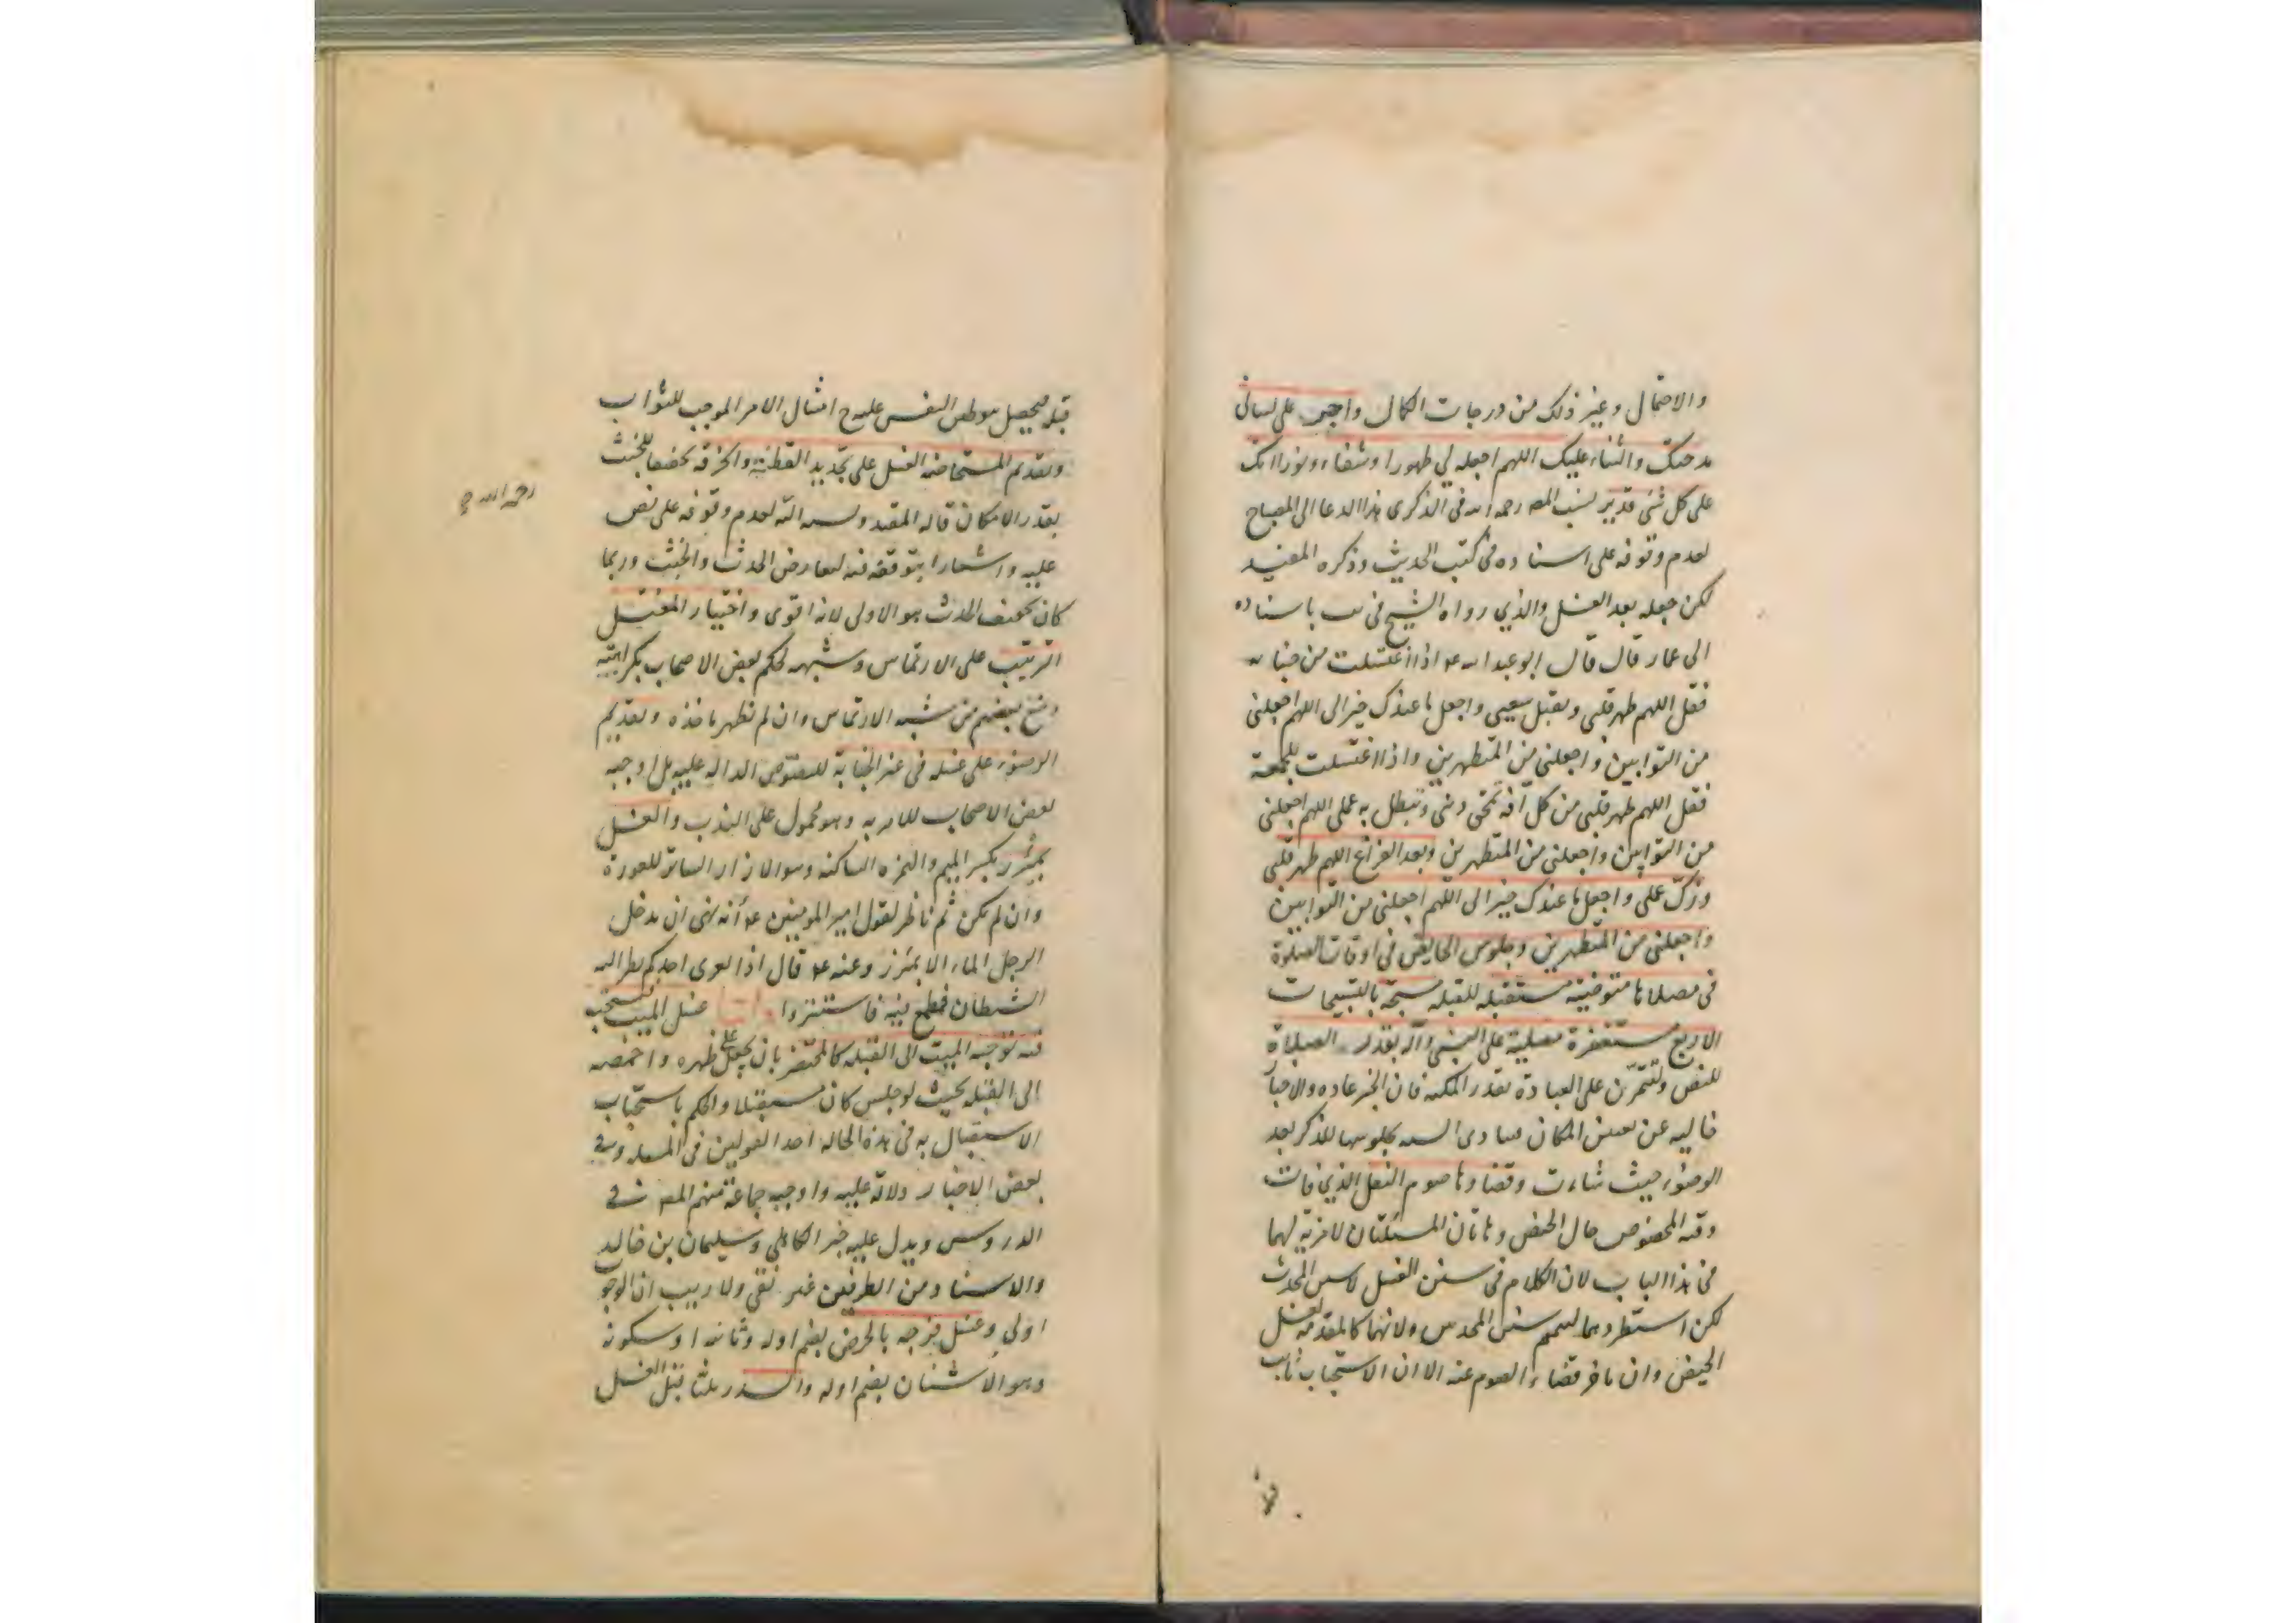 والاحتمال وغير ذلك من درجات الكمال واجر على لسانى
مدحتك والثناء عليك اللهم اجعله لي طهورا وشفاء ونورا انك
على كل شئ قدير نسب المصه رحمه الله فى الذكرى هذا الدعا الى المصباح
لعدم وقوفه على اسناده فى كتب الحديث وذكره المفيد
لكن جعله بعد الغسل والذي رواه الشيخ فى يب باسناده
الى عمار قال قال ابو عبدالله ع اذا اغتسلت من جنابه
فقل اللهم طهر قلبى وتقبل سعيى واجعل ما عندك خيرا لى اللهم اجعلنى
من التوابين واجعلنى من المتطهرين واذا اغتسلت للجمعة
فقل اللهم طهر قلبى من كل آفة تمحق دينى وتبطل به عملى اللهم اجعلنى
من التوابين واجعلنى من المتطهرين وبعد الفراغ اللهم طهر قلبى
وزكّ عملى واجعل ما عندك خيرا لى اللهم اجعلنى من التوابين
واجعلنى من المتطهرين وجلوس الحايض فى اوقات الصلوة
فى مصلاها متوضية مستقبله للقبله مسبحة بالتسبيحات
الاربع مستغفرة مصلية على النبى وآله بقدر الصلاة
للنص ولتتمرّن على العبادة بقدر المكنه فان الخير عاده والاخبا
خاليه عن تعيين المكان فيتادى السنه بجلوسها للذكر بعد
الوضوء حيث شاءت وقضاوها صوم النفل الذي فات
وقته المخصوص حال الحيض وهاتان المسئلتان لا مزية لهما
فى هذا الباب لان الكلام فى سنن الغسل لا سنن المحدث
لكن استطردهما لتتميم سنن المحدث ولانهما كالمقدمه لغسل
الحيض وان تاخر قضاء الصوم عنه الا ان الاستحباب ثابت
قبله فيحصل بتوطين النفس عليه ح امتثال الامر الموجب للثواب
وتقديم المستحاضه الغسل على تجديد القطنة والخرقه تخفيفا للخبث
بقدر الامكان قاله المفيد ونسبه اليه لعدم وقوفه على نص
عليه واشعارا بتوقفه فيه لتعارض الحدث والخبث وربما
كان تخفيف الحدث هو الاولى لانه اقوى واختيار المغتسل
الترتيب على الارتماس وشبهه لحكم بعض الاصحاب بكراهته
ومنع بعضهم من شبه الارتماس وان لم نظهر ماخذه وتقديم
الوضوء على غسله فى غير الجنابة للنصوص الداله عليه بل اوجبه
بعض الاصحاب للامر به وهو محمول على الندب والغسل
بمئزر بكسر الميم والهمزه الساكنه وهو الازار الساتر للعورة
وان لم يكن ثم ناظر لقول امير المومنين ع انه نهى ان يدخل
الرجل الماء الا بمئزر وعنه ع قال اذا تعرى احدكم نظر اليه
الشيطان فطمع فيه فاستتروا غسل الميت يستحب
فيه توجيه الميت الى القبله كالمحتضر بان يجعل على ظهره واخمصه
الى القبله بحيث لو جلس كان مستقبلا والحكم باستحباب
الاستقبال به فى هذه الحاله احد القولين فى المسئله وفي
بعض الاخبار دلالة عليه واوجبه جماعة منهم المصه في
الدروس ويدل عليه خبر الكاهلي وسليمان بن خالد
والاسناد من الطرفين غير نقي ولا ريب ان الوجو
اولى وغسل فرجه بالحرض بضم اوله وثانيه او سكونه
وهو الاشنان بضم اوله والسدر ثلثا قبل الغسل
رحمه الله